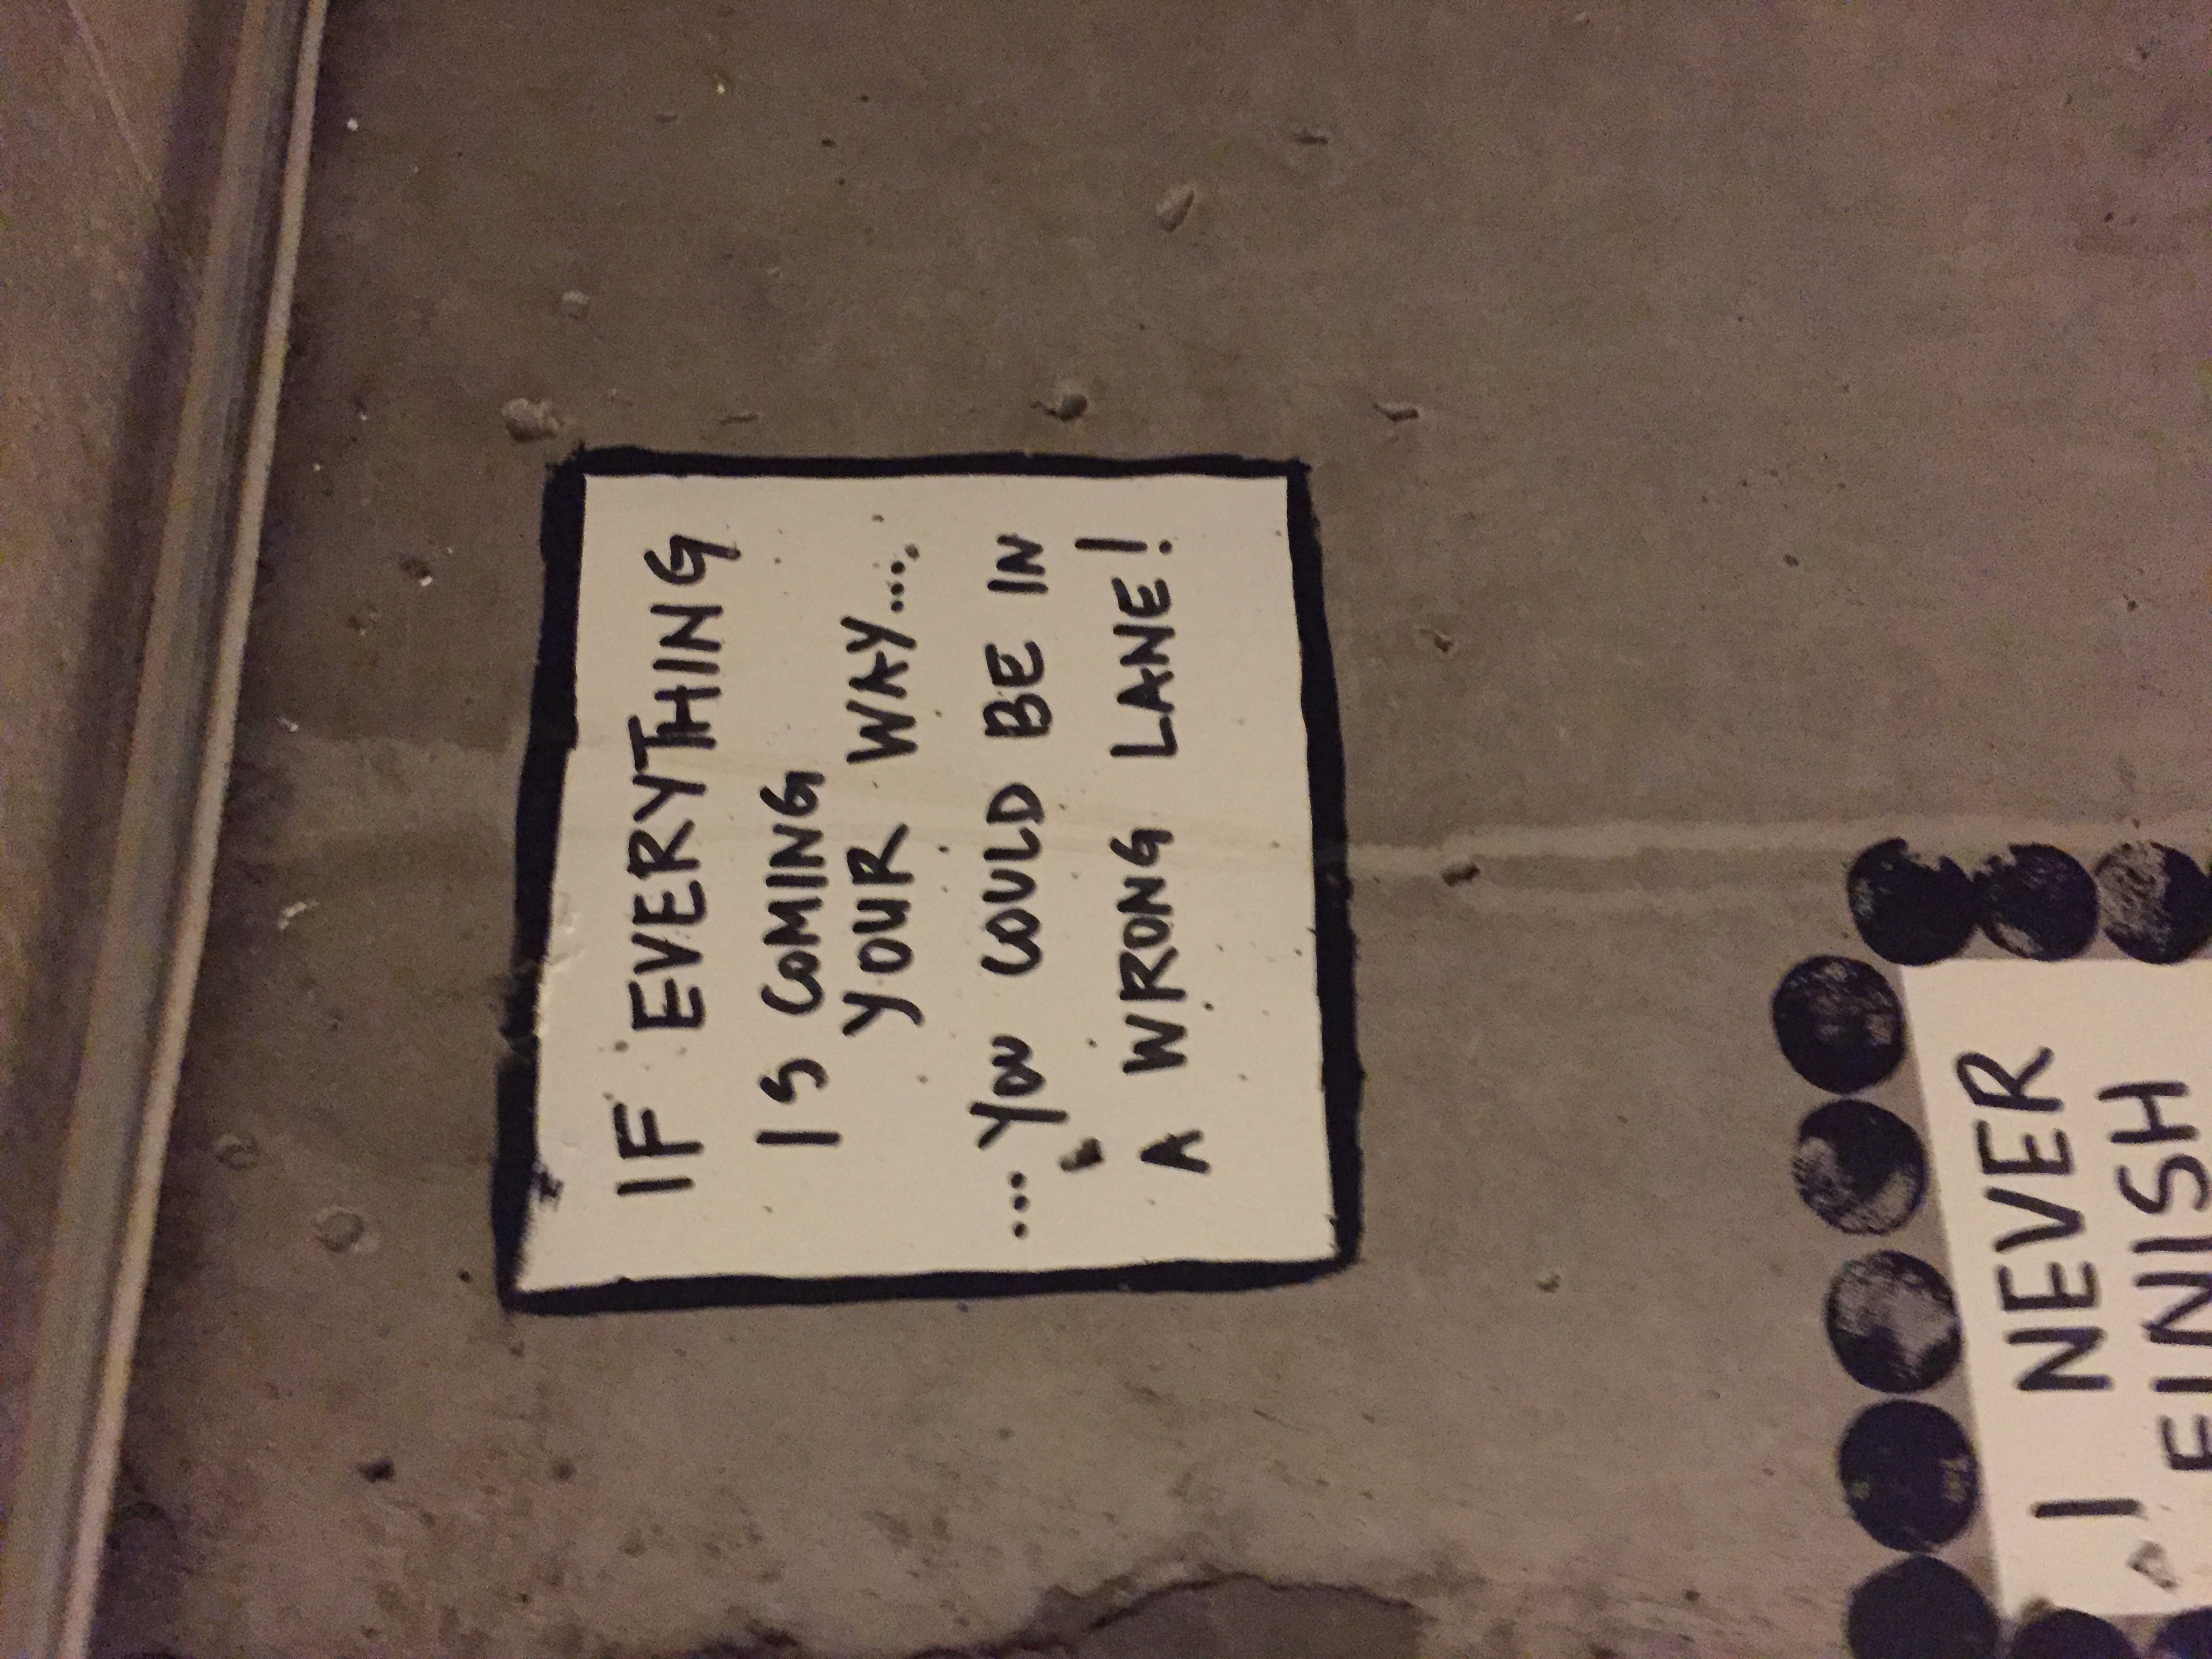 IF EVERYTHING
IS COMING
YOUR WAY...
...YOU COULD BE IN
A WRONG LANE!
I NEVER
FINISH